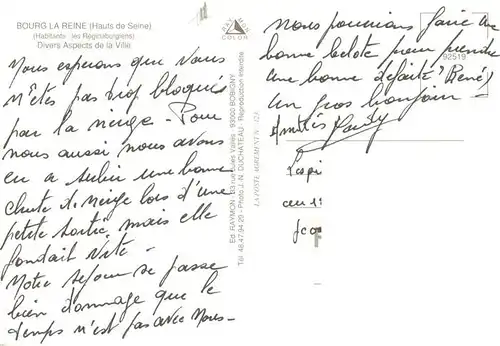 BOURG LA REINE (Hauts de Seine)
(Habitants: les Réginaborgiens)
Divers Aspects de la Ville
RAYMON
COLOR
Nous esperons que Vous
n'êtes pas trop bloqués
par la neige - Pour
nous aussi nous avons
eu a subir une bonne
chute de neige lors d'une
petite sortie, mais elle
fondait vite -
Notre sejour se passe
bien dommage que le
temps n'est pas avec Nous -
Ed. RAYMON - 83 rue Jules Vallès 93000 BOBIGNY
Tél. 48.47.94.29 - Photo J.-N. DUCHATEAU - Reproduction interdite
LA POSTE AGREMENT N°
Nous pourrions faire une
bonne belote pour prendre
une bonne défaite? (René)
Un gros bonjour
Amitiés
92519